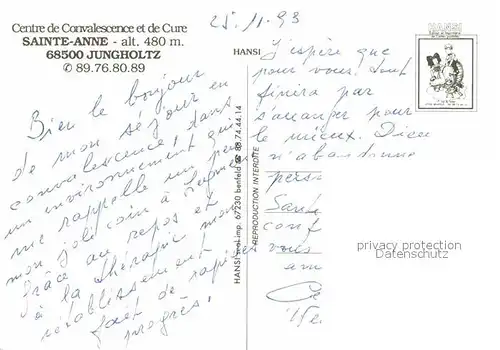 Centre de Convalescence et de Cure
SAINTE-ANNE - alt. 480 m.
68500 JUNGHOLTZ
✆ 89.76.80.89
Bien le bonjour
de mon séjour en
convalescence! dans
un environnement qui
me rappelle un peu
mon joli coin à
Grâce au repos et
à la thérapie mon
rétablissement
fait de rapides
progrès!
HANSI
HANSI vol-imp. 67230 benfeld ☎ 88.74.44.14
REPRODUCTION INTERDITE
25.11.93
HANSI
J'espère que
pour vous tout
finira par
s'arranger pour
le mieux. Dieu
n'abandonne
pers
Sant
conf
vous
am
privacy protection
Datenschutz